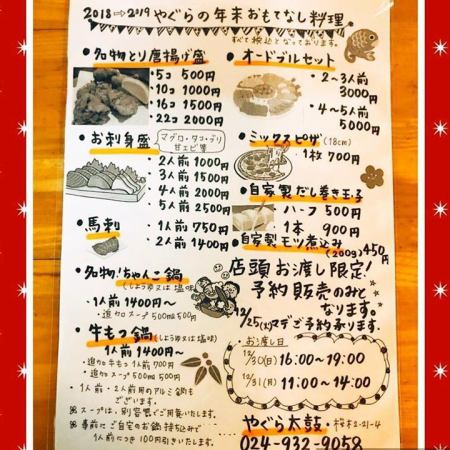 2018⇒2019 やぐらの年末おもてなし料理。
すべて税込となっております。
・名物とり唐揚げ盛
・5コ 500円
・10コ 1000円
・16コ 1500円
・22コ 2000円
・お刺身盛
マグロ・タコ・ブリ
甘エビ等
・2人前 1000円
・3人前 1500円
・4人前 2000円
・5人前 2500円
・馬刺
・1人前 750円
・2人前 1400円
・名物!ちゃんこ鍋
(しょうゆ又は塩味)
・1人前 1400円〜
・追加スープ 500ml 500円
・牛もつ鍋(しょうゆ又は塩味)
1人前 1400円〜
・追加牛もつ 1人前 700円
・追加スープ 500ml 500円
・1人前・2人前用のアルミ鍋も
ございます。
※スープは、別容器でご用意いたします。
※事前にご自宅のお鍋持ち込みで
1人前につき100円引きいたします。
・オードブルセット
・2〜3人前
3000円
・4〜5人前
5000円
・ミックスピザ(18cm)
・1枚 700円
・自家製だし巻き玉子
・ハーフ 500円
・1本 900円
・自家製モツ煮込み
(200g) 450円
店頭お渡し限定!
予約販売のみと
なります。
12/25(火)マデご予約承ります。
・お渡し日
12/30(日) 16:00〜19:00
12/31(月) 11:00〜14:00
やぐら太鼓・桜木2-21-4
024-932-9058